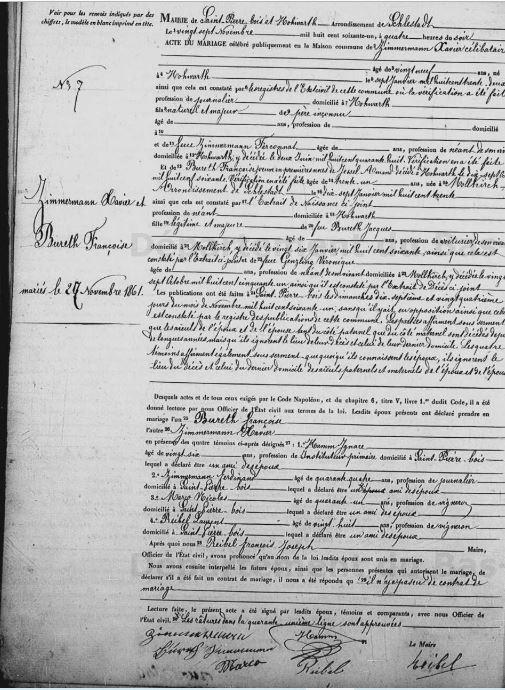 Voir pour les renvois indiqués par des
chiffres, le modèle en blanc imprimé en tête.
MAIRIE de Saint-Pierre-bois et Hohwarth Arrondissement de Schlestadt
Le vingt sept Novembre mil huit cent soixante-un, à quatre heures du soir
ACTE DU MARIAGE célébré publiquement en la Maison commune de Zimmermann Xavier célibataire
âgé de vingt neuf ans, né
à Hohwarth le sept Janvier mil huit cent trente-deux
ainsi que cela est constaté par les registres de l'Etat civil de cette commune où la vérification a été faite
profession de journalier domicilié à Hohwarth
fils naturel et majeur de père inconnu
âgé de ans, profession de domicilié
à
et de feue Zimmermann ans, profession de néant de son vivant
domiciliée à Hohwarth, y décédée le deux Juin mil huit cent quarante huit. Vérification en a été faite
Et de Bureth Françoise
mil huit cent soixante. Vérification en a été faite âgée de trente-un ans, née à Mollkirch
Arrondissement de Schlestadt le dix-sept Janvier mil huit cent trente
ainsi que cela est constaté par l'Extrait de Naissance ci-joint
profession de néant domiciliée à Hohwarth
fille légitime et majeure de feu Bureth Jacques
âgé de ans, profession de voiturier de son vivant
domicilié à Mollkirch, y décédé le vingt six Janvier mil huit cent soixante, ainsi que cela est
constaté par l'extrait ci-joint et de feue Gentzling Véronique
âgée de ans, profession de néant de son vivant domiciliée à Mollkirch, y décédée le vingt
sept Octobre mil huit cent cinquante-un ainsi qu'il est constaté par l'Extrait de Décès ci-joint
Les publications ont été faites à Saint-Pierre-bois les dimanches dix-sept et vingt quatrième
jours du mois de Novembre mil huit cent soixante-un, sans qu'il y ait eu opposition ainsi que cela
est constaté par le registre des publications de cette commune. Les époux affirment sous serment
que les aïeuls de l'époux et de l'épouse tant du côté paternel que du côté maternel sont décédés depuis
de longues années mais qu'ils ignorent le lieu de leur décès et celui de leur dernier domicile. Les quatre
témoins affirment également sous serment que quoiqu'ils connaissent les époux, ils ignorent le
lieu du décès et celui du dernier domicile des aïeuls paternels et maternels de l'époux et de l'épouse
No 7
Zimmermann Xavier et
Bureth Françoise
mariés le 27 Novembre 1861.
Desquels actes et de tous ceux exigés par le Code Napoléon, et du chapitre 6, titre V, livre 1.er dudit Code, il a été
donné lecture par nous Officier de l'État civil aux termes de la loi. Lesdits époux présents ont déclaré prendre en
mariage l'un Bureth Françoise
l'autre Zimmermann Xavier
en présence des quatre témoins ci-après désignés 1.° Hamm Ignace
âgé de vingt six ans, profession de Instituteur primaire domicilié à Saint-Pierre-bois
lequel a déclaré être un ami des époux
2.° Zimmermann Ferdinand âgé de quarante quatre ans, profession de journalier
domicilié à Saint-Pierre-bois lequel a déclaré être un ami des époux
3.° Marco Nicolas âgé de quarante-un ans, profession de vigneron
domicilié à Saint-Pierre-bois lequel a déclaré être un ami des époux
4.° Reibel Laurent âgé de vingt-huit ans, profession de vigneron
domicilié à Saint-Pierre-bois lequel a déclaré être un ami des époux
Après quoi nous Reibel François Joseph Maire,
Officier de l'État civil, avons prononcé qu'au nom de la loi lesdits époux sont unis en mariage.
Nous avons ensuite interpellé les futurs époux, ainsi que les personnes présentes qui autorisent le mariage, de
déclarer s'il a été fait un contrat de mariage, il nous a été répondu qu'il n'y a pas eu de contrat de
mariage
Lecture faite, le présent acte a été signé par lesdits époux, témoins et comparants, avec nous Officier de
l'État civil. Les ratures dans la quarante unième ligne sont approuvées
Zimmermann Hamm
Bureth Zimmermann Le Maire
Marco Reibel Reibel